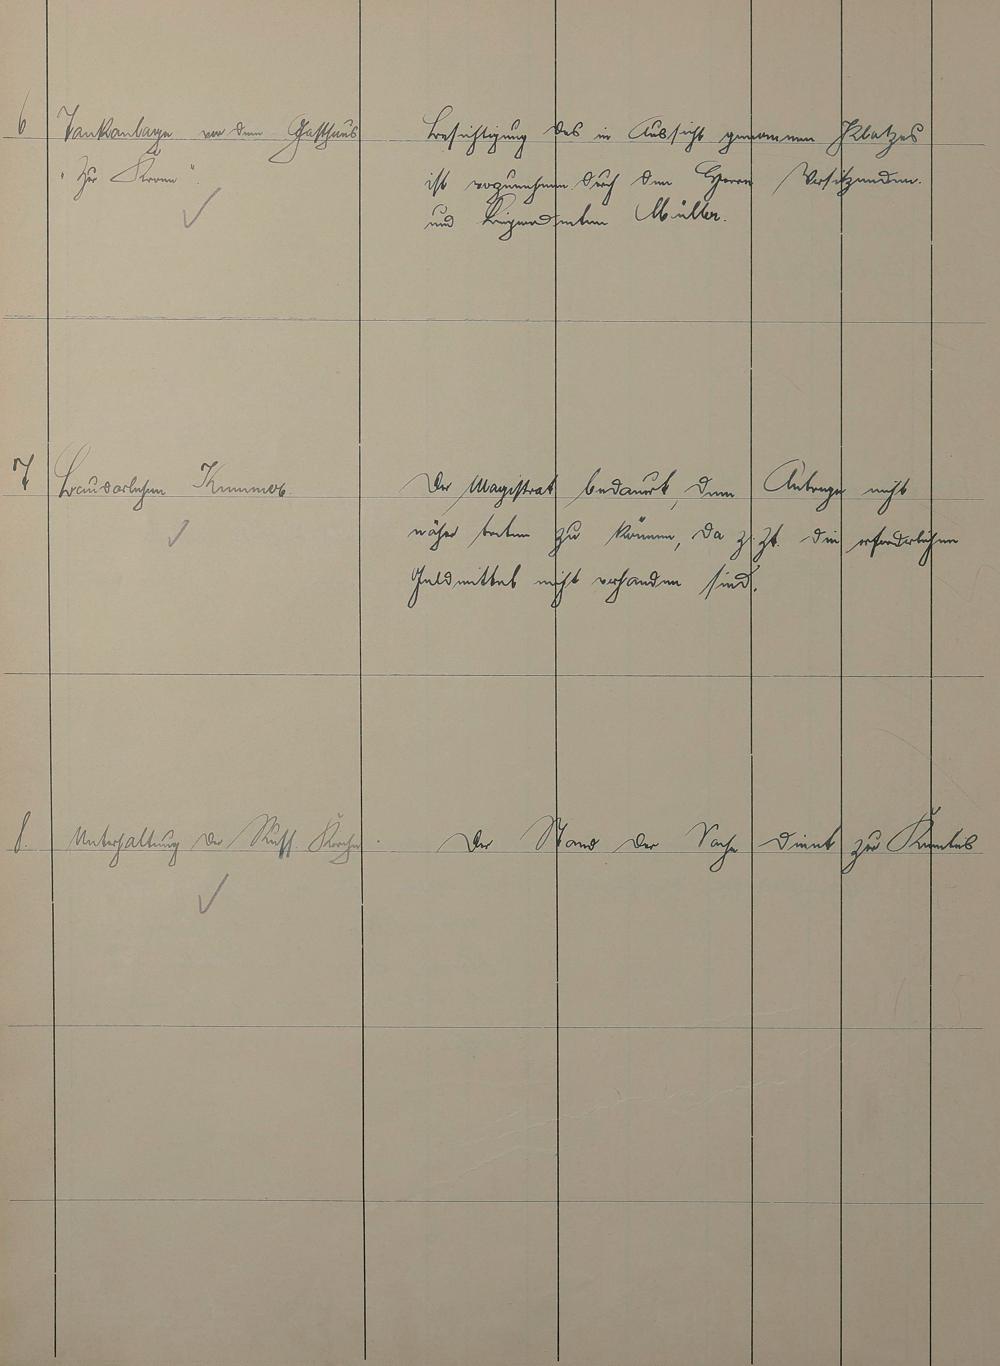 6 Tankanlage vor dem Gasthaus
"Zur Krone".
Besichtigung des in Aussicht genommenen Platzes
ist vorzunehmen durch den Herrn Vorsitzenden
und Beigeordneten Müller.
7 Baudarlehen
Der Magistrat bedauert, dem Antrage nicht
näher treten zu können, da z. Zt. die erforderlichen
Geldmittel nicht vorhanden sind.
8. Unterhaltung der Russ. Kirche.
Der Stand der Sache dient zur Kenntnis